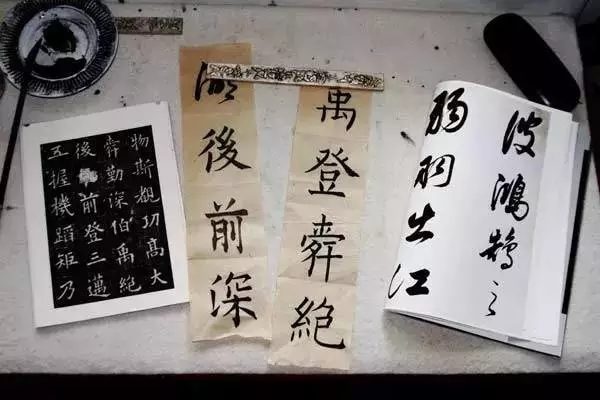 物斯觀功高大
舜勤深伯禹絕
後前登三邁
五握機蹈矩乃
禹登舜絕
後前深
彼鴻鵠之
弱羽出江